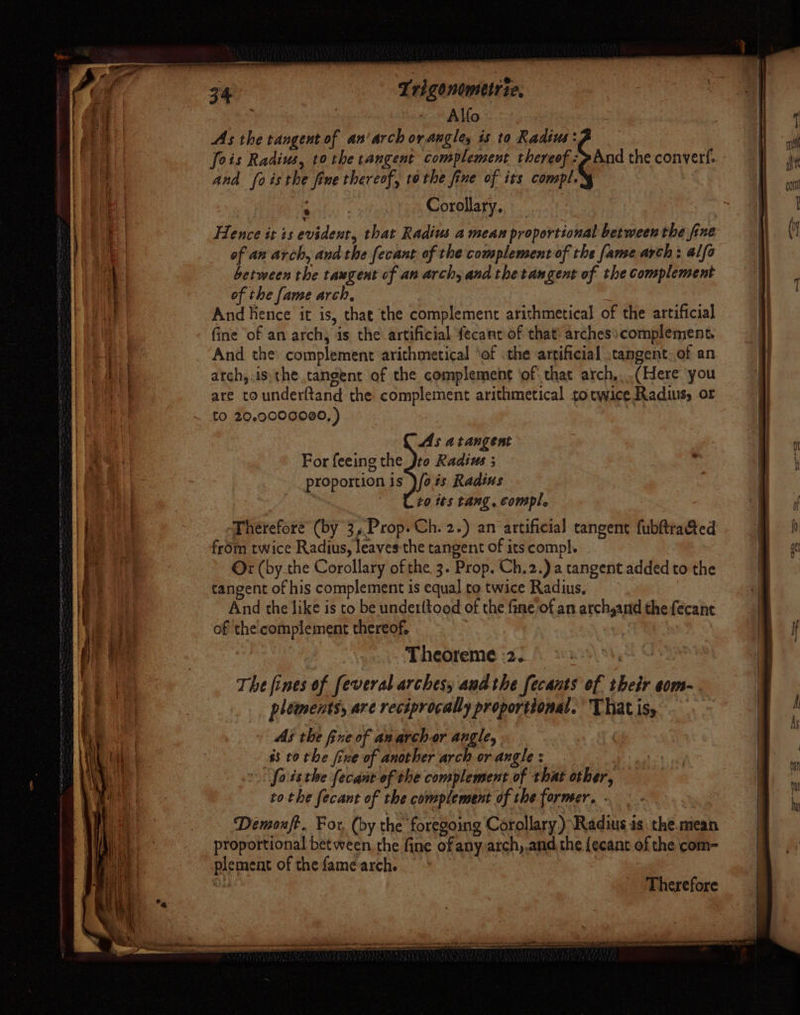 34 Trigonometrie.
Alſo
As the tangent of an arch or angle, is to Radius:
ſo is Radius, to the tangent complement thereof: And the converſ.
and ſo is the ſine thereof, to the ſine of its compl.
Corollary.
Hence it is evident, that Radius a mean proportional between the ſine
of an arch, and the ſecant of the complement of the ſame arch: alſo
between the tangent of an arch, and the tangent of the complement
of the ſame arch.
And hence it is, that the complement arithmetical of the artificial
ſine of an arch, is the artificial ſecant of that arches complement.
And the complement arithmetical of the artificial tangent of an
arch, is the tangent of the complement of that arch. (Here you
are to underſtand the complement arithmetical to twice Radius, or
to 20.0000000.)
As a tangent
For ſeeing the to Radius;
proportion is ſo is Radius
to its tang. compl.
Therefore (by 3. Prop. Ch. 2.) an artificial tangent ſubſtracted
from twice Radius, leaves the tangent of its compl.
Or (by the Corollary of the 3. Prop. Ch.2.) a tangent added to the
tangent of his complement is equal to twice Radius.
And the like is to be underſtood of the ſine of an arch, and the ſecant
of the complement thereof.
Theoreme 2.
The ſines of ſeveral arches, and the ſecants of their com-
plements, are reciprocally proportional. That is,
As the ſine of an arch or angle,
is to the ſine of another arch or angle:
ſo is the ſecant of the complement of that other,
to the ſecant of the complement of the former.
Demonſt. For, (by the foregoing Corollary) Radius is the mean
proportional between the ſine of any arch, and the ſecant of the com-
plement of the ſame arch.
Therefore